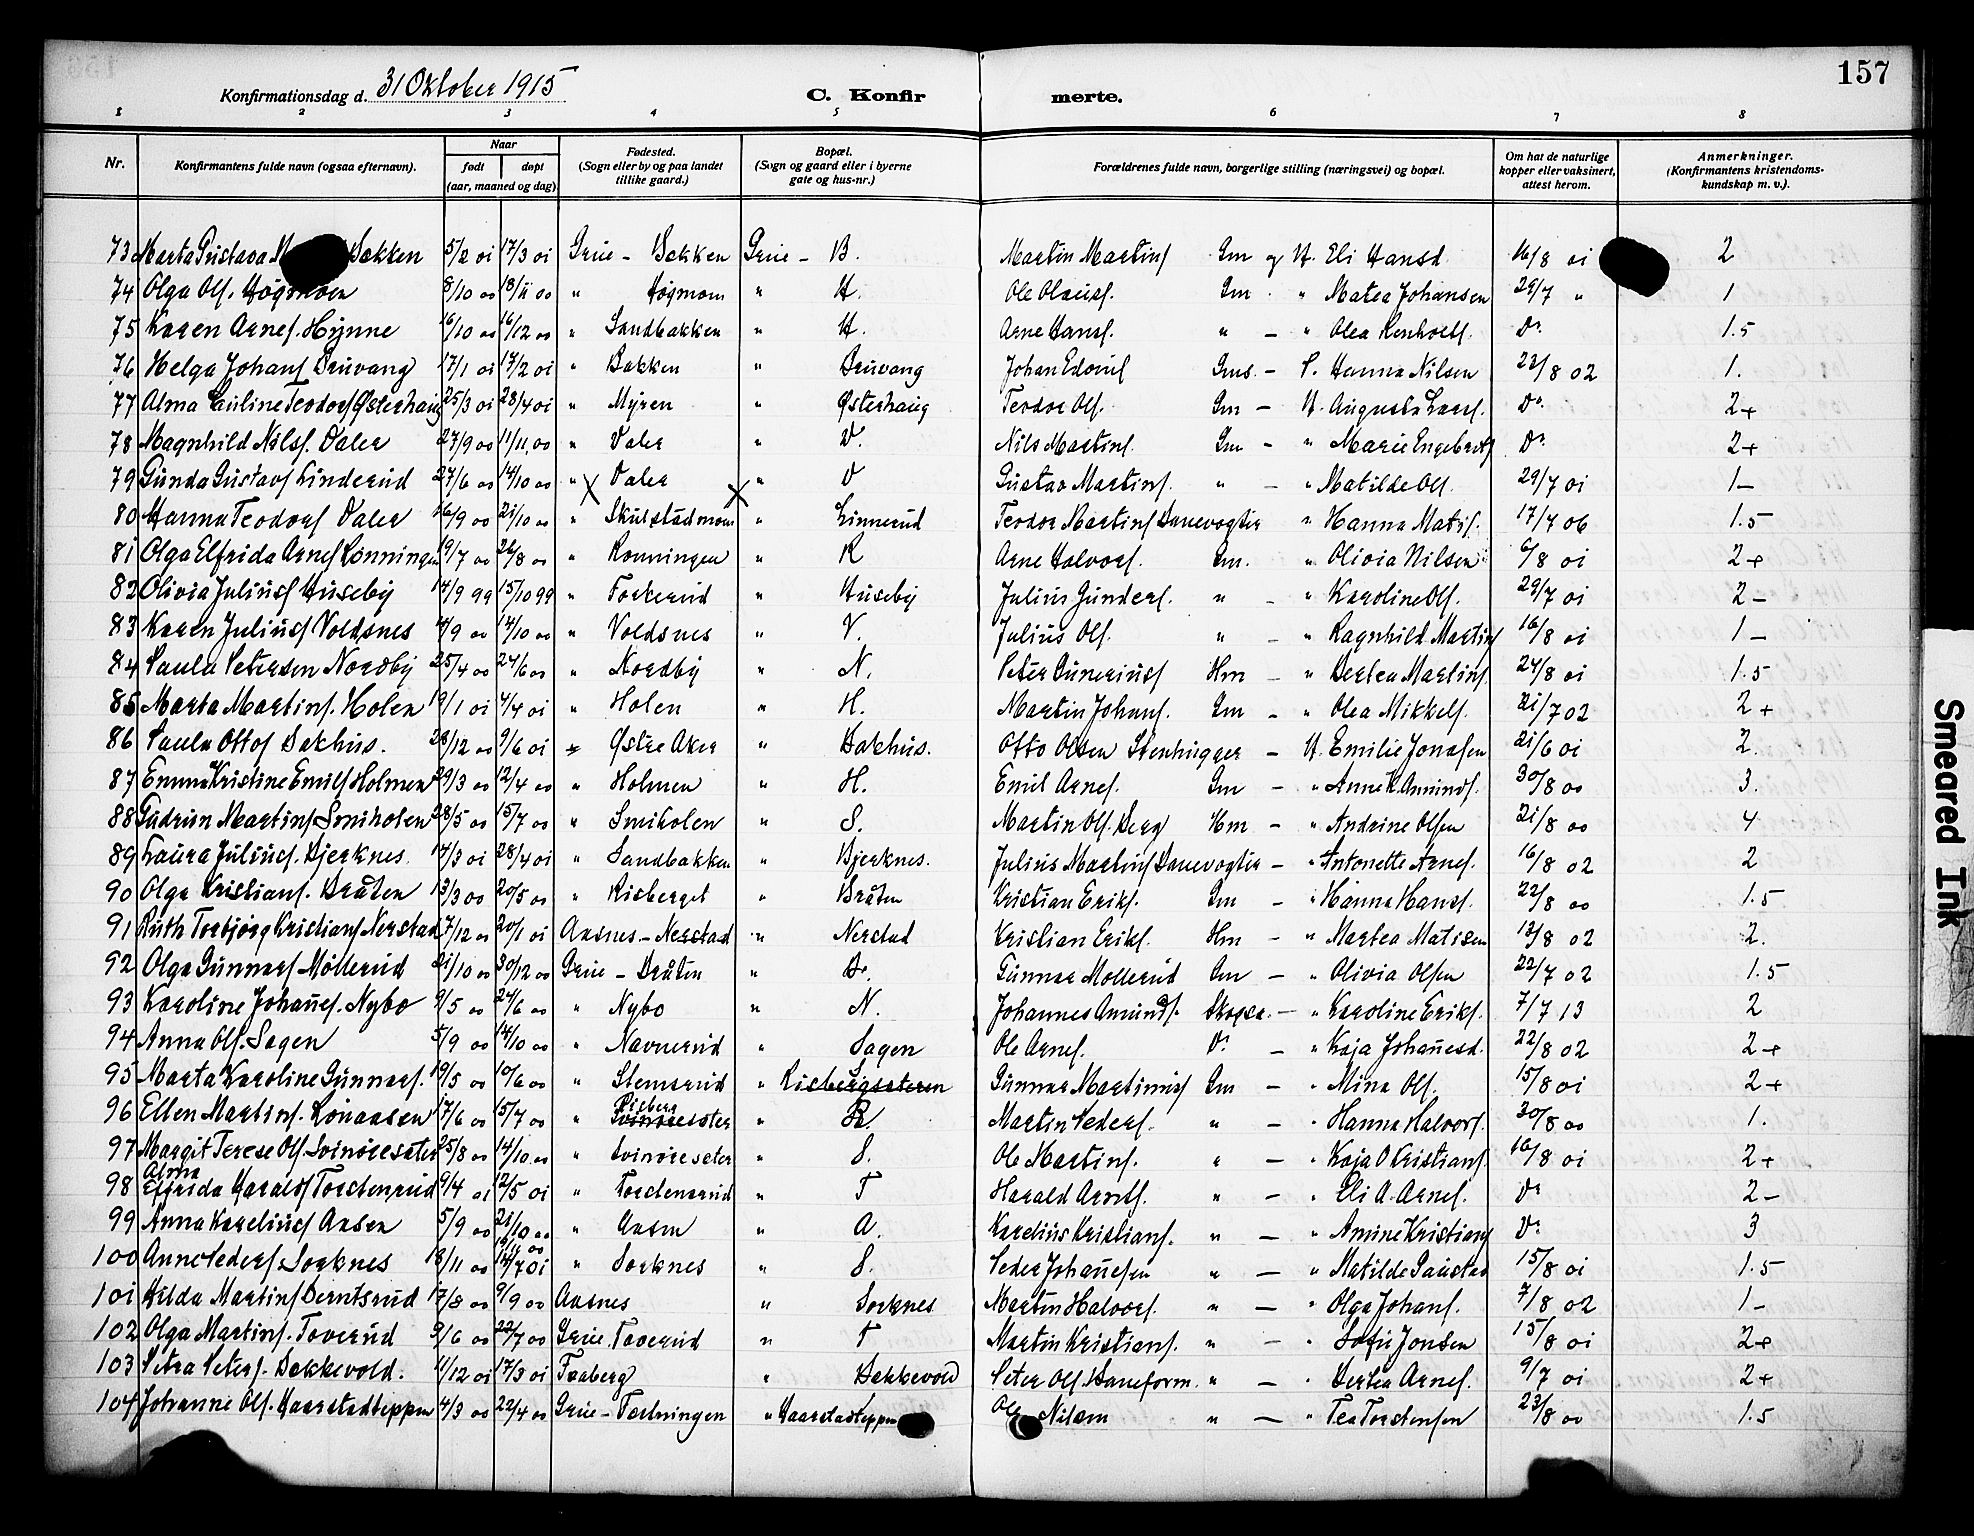 157
Konfirmationsdag d. 31 Oktober 1915 C. Konfirmerte.
1 2 3 4 5 6 7 8
Nr. Konfirmantens fulde navn (ogsaa efternavn). Naar født døpt (aar, maaned og dag) Fødested. (Sogn eller by og paa landet tillike gaard.) Bopæl. (Sogn og gaard eller i byerne gate og hus-nr.) Forældrenes fulde navn, borgerlige stilling (næringsvei) og bopæl. Om hat de naturlige kopper eller vaksinert, attest herom. Anmerkninger. (Konfirmantens kristendomskundskap m. v.).
73 Marta Gustava Bakken 5/2 01 17/3 01 Grue - Bakken Grue - B. Martin Martins Gm og H. Eli Hansd. 16/8 01 2
74 Olga Ols. Høgmoen 8/10 00 18/11 00 " Høgmoen " H. Ole Oleus. Gm. " Matea Johansen 29/7 " 1
75 Karen Arnes. Hynne 16/10 00 16/12 00 " Sandbakken " H. Arne Hans. " - " Olea Do 1.5
76 Helga Johans Bruvang 17/1 01 17/2 01 " Bakken " Bruvang Johan Gms. - P. Hanna Nilsen 23/8 02 1.
77 Alma Pauline Teodors Østerhaug 25/3 01 28/4 01 " Myren " Østerhaug Teodor Ols. Gm - H. Augusta Lars. Do 2+
78 Magnhild Nils. Valer 27/9 00 11/11 00 " Valer " V. Nils Martins. Gm - " Marie Engebrets Do 2+
79 Gunda Gustavs Linderud 27/6 00 14/10 00 " Valer " V Gustav Martins. " - " Matilde Ols. 29/7 01 1-
80 Hanna Teodors Valer 16/9 00 21/10 00 " Skulstadmoen " Linnerud Teodor Martins Banevogter " Hanna Matis. 17/7 06 1.5
81 Olga Elfrida Arnes Rønningen 19/7 00 26/8 00 " Rønningen " R Arne Halvors. Gm. " Olivia Nilsen 6/8 01 2+
82 Olivia Julius Huseby 14/9 99 15/10 99 " Torkerud " Huseby Julius Gunders. " - " Karoline Ols. 29/7 01 2-
83 Karen Julius Voldsnes 4/9 00 14/10 00 " Voldsnes " V. Julius Ols. " - " Ragnhild Martins 16/8 01 1-
84 Paula Petersen Nordby 25/4 00 24/6 00 " Nordby " N. Peter Gunerius Hm - " Bertea Martins. 24/8 01 1.5
85 Marta Martins. Holen 19/1 01 4/4 01 " Holen " H. Martin Johans. Gm - " Olea Mikkels. 21/7 02 2+
86 Paula Ottos Bakhus. 28/12 00 9/6 01 Østre Aker " Bakhus. Otto Olsen Stenhugger - H. Emilie Jonasen 21/6 01 2.
87 Emma Kristine Emils Holmen 29/3 00 12/4 00 " Holmen " H. Emil Arnes. Gm - " Anne K. Amunds. 30/8 00 3.
88 Gudrun Martins Smiholen 28/5 00 15/7 00 " Smiholen " S. Martin Ols. Berg Hm - " Andrine Olsen 21/8 00 4
89 Laura Julius. Bjerknes 14/3 01 28/4 01 " Sandbakken " Bjerknes. Julius Martins Banevogter - " Antonette Arnes. 16/8 02 2
90 Olga Kristians. Bråten 13/3 00 20/5 00 " Risberget " Bråten Kristian Eriks. Gm - " Hanna Hans. 22/8 00 1.5
91 Ruth Torbjørg Kristians Nerstad 17/12 00 20/1 01 Aasnes - Nerstad " Nerstad Kristian Eriks. Hm - " Martea Matisen 13/8 02 2.
92 Olga Gunnars Møllerud 21/10 00 30/12 00 Grue - Bråten " Br. Gunnar Møllerud Gm - " Olivia Olsen 22/7 02 1.5
93 Karoline Johannes. Nybo 9/5 00 24/6 00 " Nybo " N. Johannes Amunds. Skogsa. - " Karoline Eriks. 7/7 13 2
94 Anna Ols. Sagen 5/9 00 14/10 00 " Navnerud " Sagen Ole Arnes. Do - " Kaja Johannesd. 22/8 02 2+
95 Marta Karoline Gunnars. 19/5 00 10/6 00 " Stemsrud " Risbergsæteren Gunnar Martinius Gm - " Mina Ols. 15/8 01 2+
96 Ellen Martins. Lønaasen 17/6 00 15/7 00 " Risberg Svinøresæter " R. Martin Peders. " - " Hanna Halvors. 30/8 00 1.
97 Margit Terese Ols. Svinøresæter 25/8 00 14/10 00 " Svinøresæter " S. Ole Martins. " - " Kaja O Kristians. 16/8 01 2+
98 Alma Elfrida Haralds Torstensrud 9/4 01 12/5 01 " Torstensrud " T Harald Arnts. " - " Eli A. Arnes. Do 2-
99 Anna Karelius Aasen 5/9 00 21/10 00 " Aasen " A. Karelius Kristians. " - " Amine Kristians Do 3
100 Anne Peders. Sorknes 13/11 00 14/7 01 " Sorknes " S. Peder Johannesen " - " Matilde Paustad 15/8 01 1.5
101 Hilda Martins Berntsrud 17/8 00 9/9 00 Aasnes " Sorknes Martin Halvors. " - " Olga Johans. 7/8 02 1-
102 Olga Martins. Toverud 9/6 00 22/7 00 Grue - Toverud " T Martin Kristians. " - " Sofie Jonsen 15/8 01 2+
103 Petra Peters. Bekkevold. 11/12 01 17/3 01 Faaberg " Bekkevold Peter Ols. Baneform. " - " Bertea Arnes. 9/7 01 2+
104 Johanne Ols. Haarstadteppen 4/3 00 22/4 00 Grue - Tørlningen " Haarstadteppen Ole Nilsen " - " Tea Torstensen 23/8 00 1.5
Smeared Ink